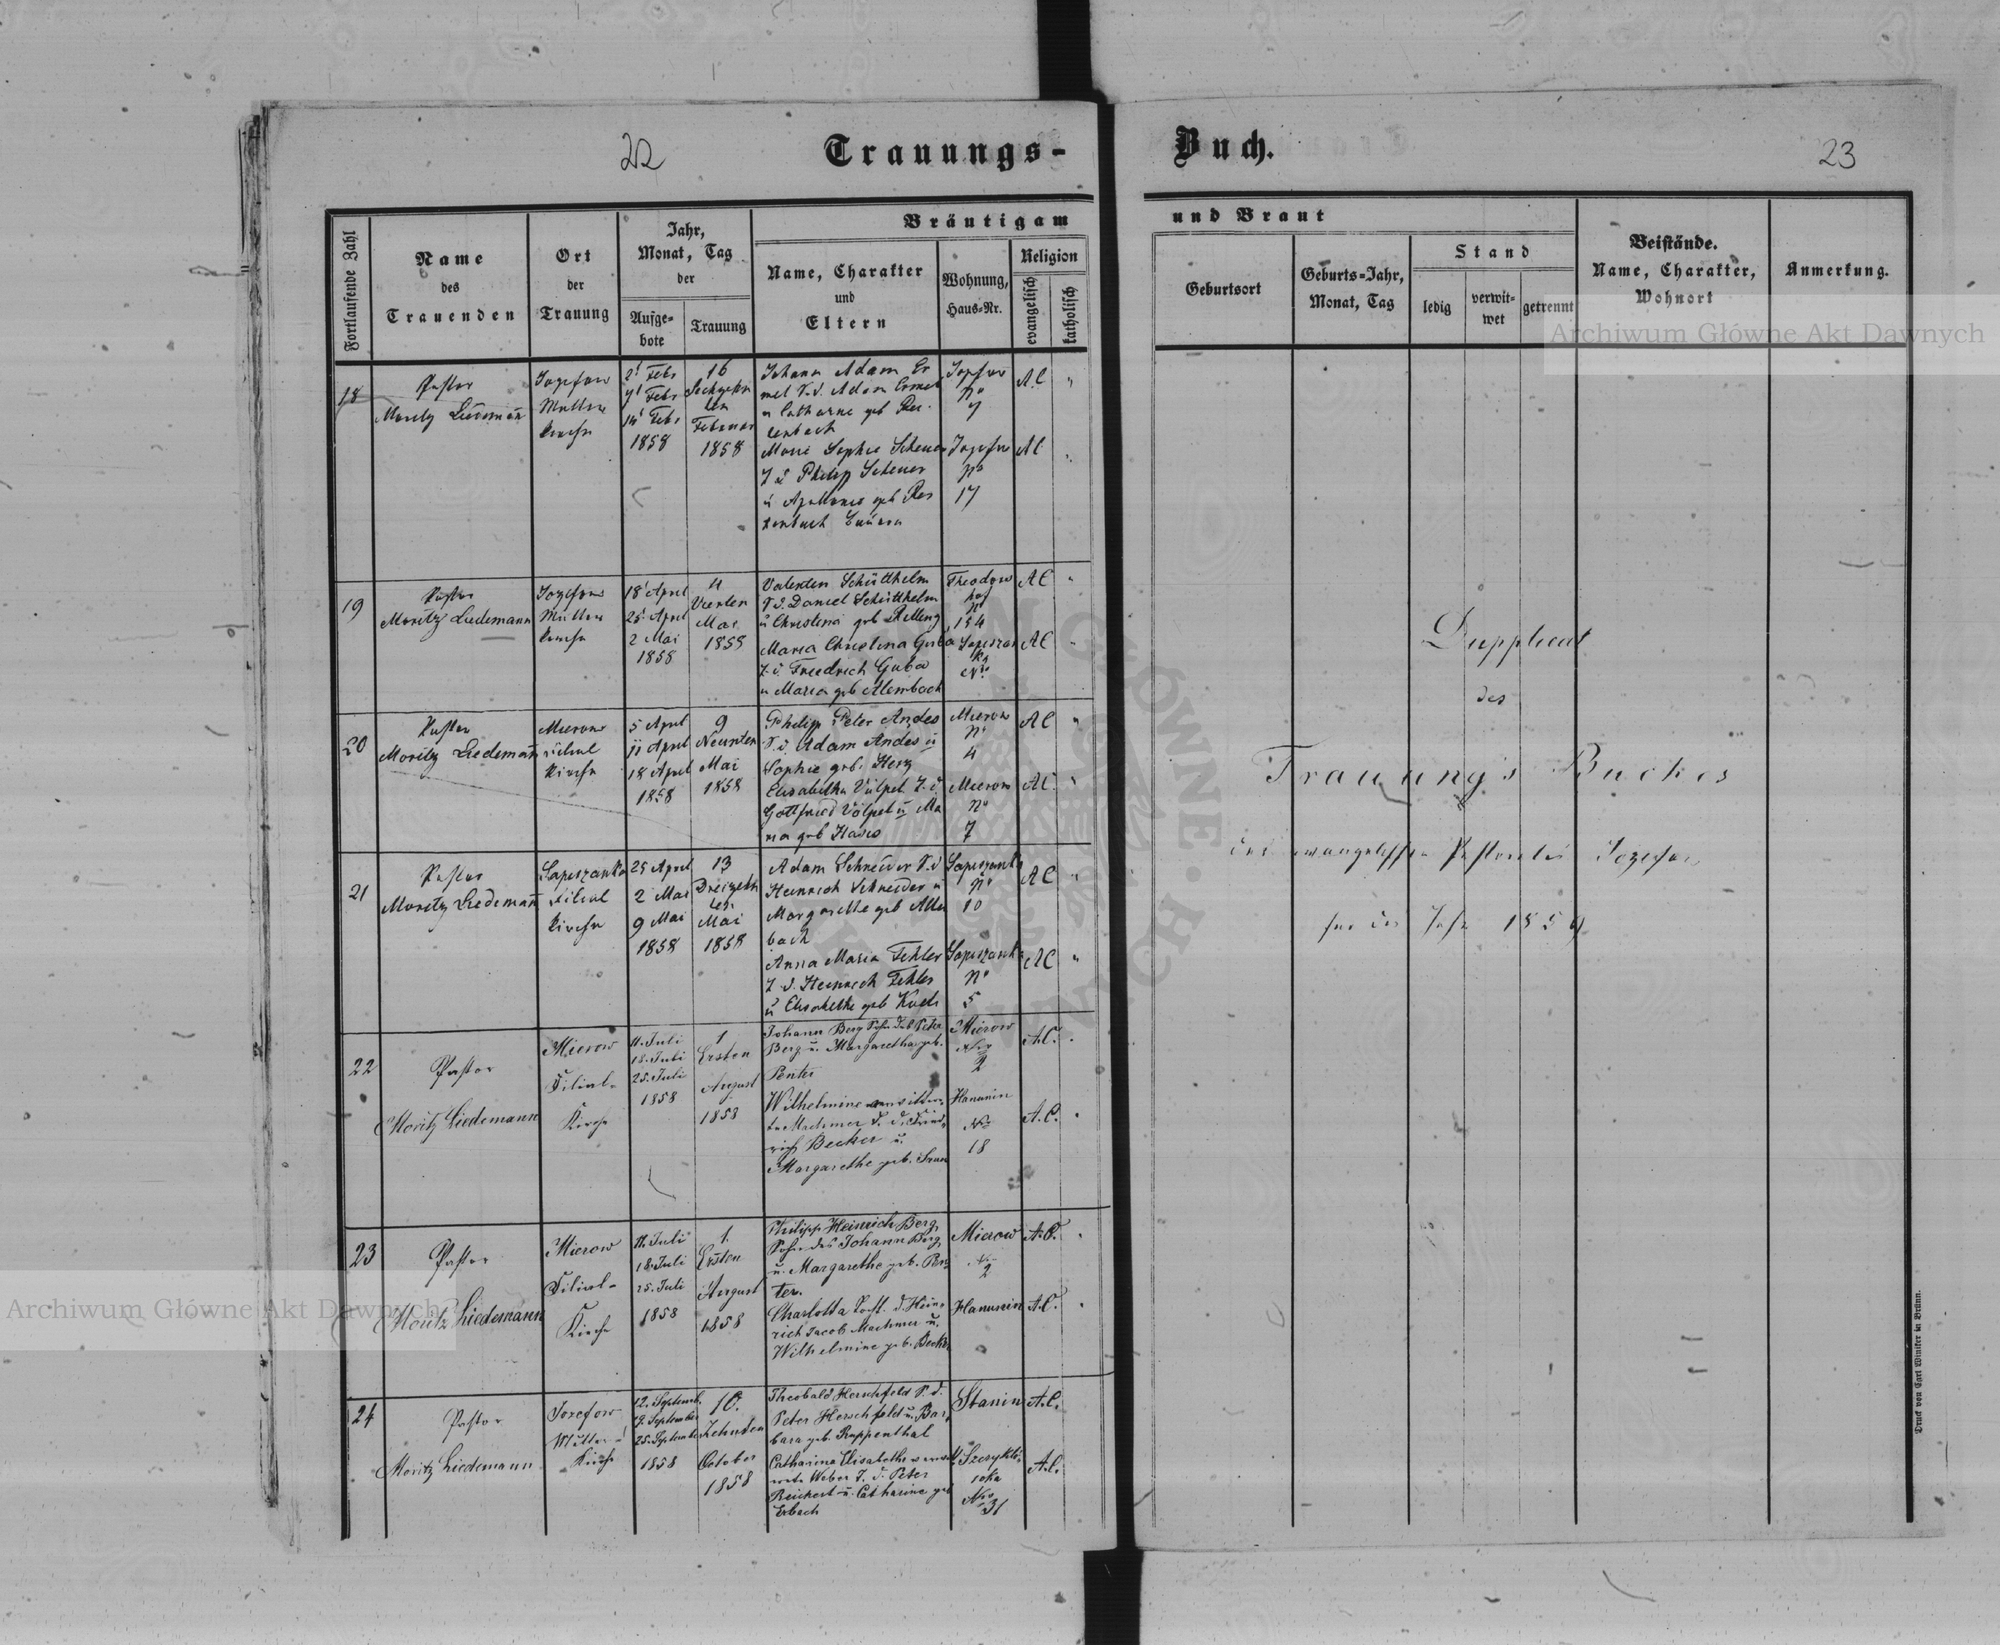 22
Trauungs-
Fortlaufende Zahl
Name
des
Trauenden
Ort
der
Trauung
Jahr,
Monat, Tag
der
Aufge-
bote
Trauung
Bräutigam
Name, Charakter
und
Eltern
Wohnung,
Haus-Nr.
Religion
evangelisch
katholisch
18
Pastor
Moritz Liedemañ
Jozefow
Mutter
Kirche
2' Febr
7' Febr
14' Febr
1858
16
Sechzehn
ten
Februar
1858
Johann Adam Er
mel S.d. Adam Ermel
u Catharine geb
Jozefow
No
7
A.C
"
Marie Sophie Scheuer
T d Philip Scheuer
u Apollonia geb
Jozefow
No
17
AC
19
Pastor
Moritz Liedemann
Jozefow
Mutter
Kirche
18' April
25' April
2 Mai
1858
4
Vierten
Mai
1858
Valenten Schütthelm
S.d. Daniel Schütthelm
u Christina geb
Theodors
hof
No
154
AC
"
Maria Christina Guba
T.d. Friedrich Guba
u Maria geb Alembach
Sapiszan
ka
No
AC
20
Pastor
Moritz Liedemañ
Mierow
Filial
Kirche
5 April
11 April
18 April
1858
9
Neunten
Mai
1858
Philipp Peter Andes
S.d. Adam Andes u
Sophie geb. Herz
Mierow
No
4
AC
"
Elisabetha Völpel T.d.
Gottfried Völpel u Ma
ria geb Haas
Mierow
No
7
AC.
"
21
Pastor
Moritz Liedemañ
Sapiszanka
Filial
Kirche
25 April
2 Mai
9 Mai
1858
13
Dreizehn
ten
Mai
1858
Adam Schneider S.d
Heinrich Schneider u
Margarethe geb Allen
bach
Sapiszanka
No
10
AC
"
Anna Maria Fehler
T.d. Heinrich Fehler
u Elisabethe geb Koch
Sapiszanka
No
5
AC
"
22
Pastor
Moritz Liedemann
Mierow
Filial-
Kirche
11. Juli
18. Juli
25. Juli
1858
1
Ersten
August
1858
Johann Berg Sohn des Peter
Berg u. Margaretha geb.
Penter
Mierow
Nro
2
A.C.
Wilhelmine verwittwe-
te Machmer T. d. Fried-
rich Becker u.
Margarethe geb.
Hanunin
Nro
18
A.C.
23
Pastor
Moritz Liedemann
Mierow
Filial-
Kirche
11. Juli
18. Juli
25. Juli
1858
1.
Ersten
August
1858
Philipp Heinrich Berg,
Sohn des Johann Berg
u. Margarethe geb. Pen-
ter.
Mierow
Nro
2
A.C.
Charlotta Tocht. d. Hein-
rich Jacob Machmer u.
Wilhelmine geb. Becker
Hanunin
A.C.
24
Pastor
Moritz Liedemann
Jozefow
Mutter-
Kirche
12. Septemb.
19. September
25. September
1858
10.
Zehnten
October
1858
Theobald Herschfeld S. d.
Peter Herschfeld u. Bar-
bara geb. Ruppenthal
Stanin
A.C.
Catharina Elisabetha verwit-
wete Weber T. d. Peter
Reichert u. Catharine geb
Erbach
Nro
31
A.C.
Buch.
23
und Braut
Geburtsort
Geburts-Jahr,
Monat, Tag
Stand
ledig
verwit-
wet
getrennt
Beistände.
Name, Charakter,
Wohnort
Anmerkung.
Dupplicat
des
Trauung's Buches
des evangelischen Pastorates Jozefow
für das Jahr 1859
Druck von Carl Winiker in Brünn.
Archiwum Główne Akt Dawnych
Archiwum Główne Akt Dawnych